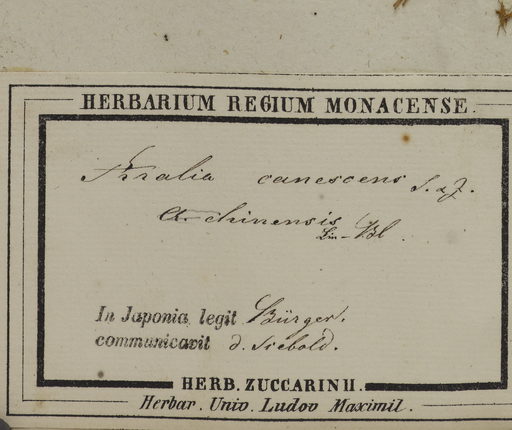 HERBARIUM REGIUM MONACENSE.
Aralia canescens S. & Z.
Ar. chinensis
Lin – Bl.
In Japonia legit Bürger.
communicavit d. Siebold.
HERB. ZUCCARINII.
Herbar. Univ. Ludov Maximil.